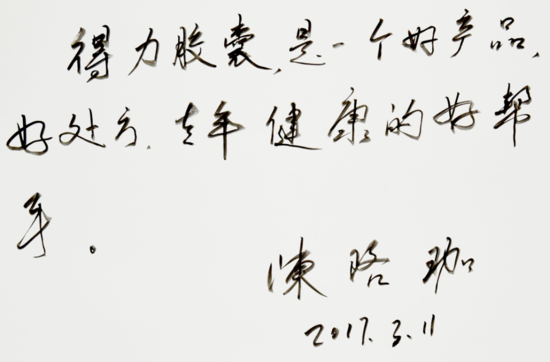 得力胶囊,是一个好产品,
好处方,老年健康的好帮
手。
陳路珈
2017.3.11